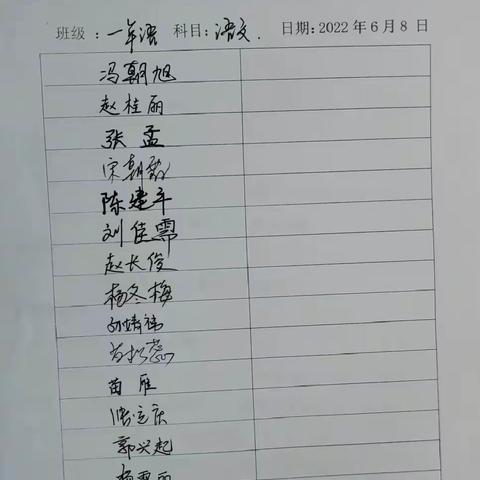 班级：一年语 科目：语文. 日期：2022年6月8日
冯朝旭
赵桂丽
张孟
宋朝霞
陈建平
刘佳霈
赵长俊
杨冬梅
孙婧祎
苗雁
张运庆
郭兴起